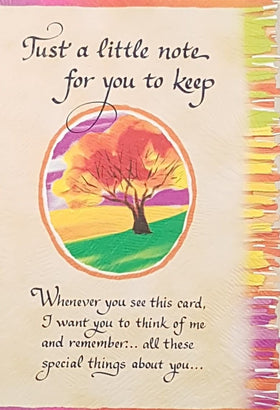 Just a little note
for you to keep
Whenever you see this card,
I want you to think of me
and remember... all these
special things about you...